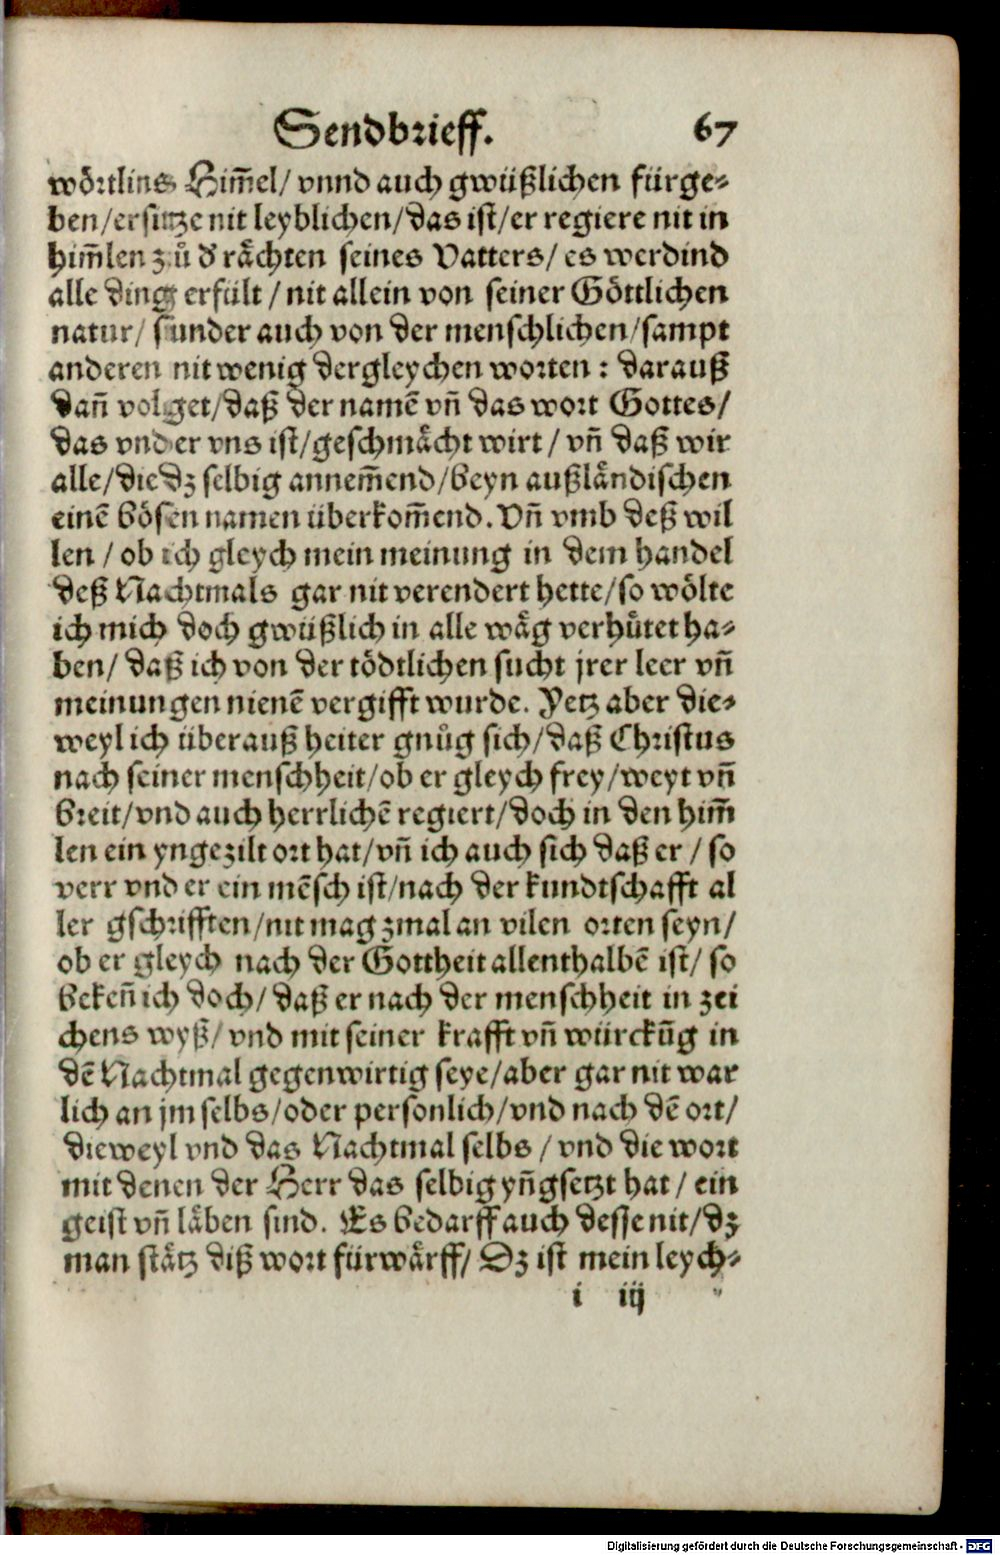 Sendbrieff. 67
wörtlins Him̃el/ vnnd auch gwüßlichen fürge⸗
ben/ersitze nit leyblichen/das ist/er regiere nit in
him̃len zů d' rächten seines Vatters/ es werdind
alle ding erfült / nit allein von seiner Göttlichen
natur/ sunder auch von der menschlichen/sampt
anderen nit wenig dergleychen worten : darauß
dañ volget/daß der namẽ vñ das wort Gottes/
das vnder vns ist/geschmächt wirt / vñ daß wir
alle/die dz selbig annem̃end/beyn außländischen
einẽ bösen namen überkom̃end. Vñ vmb deß wil
len / ob ich gleych mein meinung in dem handel
deß Nachtmals gar nit verendert hette/so wölte
ich mich doch gwüßlich in alle wäg verhůtet ha⸗
ben/ daß ich von der tödtlichen sucht jrer leer vñ
meinungen nienẽ vergifft wurde. Yetz aber die⸗
weyl ich überauß heiter gnůg sich/daß Christus
nach seiner menschheit/ob er gleych frey/weyt vñ
breit/vnd auch herrlichẽ regiert/doch in den him̃
len ein yngezilt ort hat/vñ ich auch sich daß er / so
verr vnd er ein mẽsch ist/nach der kundtschafft al
ler gschrifften/nit mag zmal an vilen orten seyn/
ob er gleych nach der Gottheit allenthalbẽ ist/ so
bekeñ ich doch/ daß er nach der menschheit in zei
chens wyß/ vnd mit seiner krafft vñ würckũg in
dẽ Nachtmal gegenwirtig seye/aber gar nit war
lich an jm selbs/oder personlich/vnd nach dẽ ort/
dieweyl vnd das Nachtmal selbs / vnd die wort
mit denen der Herr das selbig yñgsetzt hat / ein
geist vñ läben sind. Es bedarff auch desse nit/dz
man stätz diß wort fürwärff/ Dz ist mein leych⸗
i iij
Digitalisierung gefördert durch die Deutsche Forschungsgemeinschaft - DFG